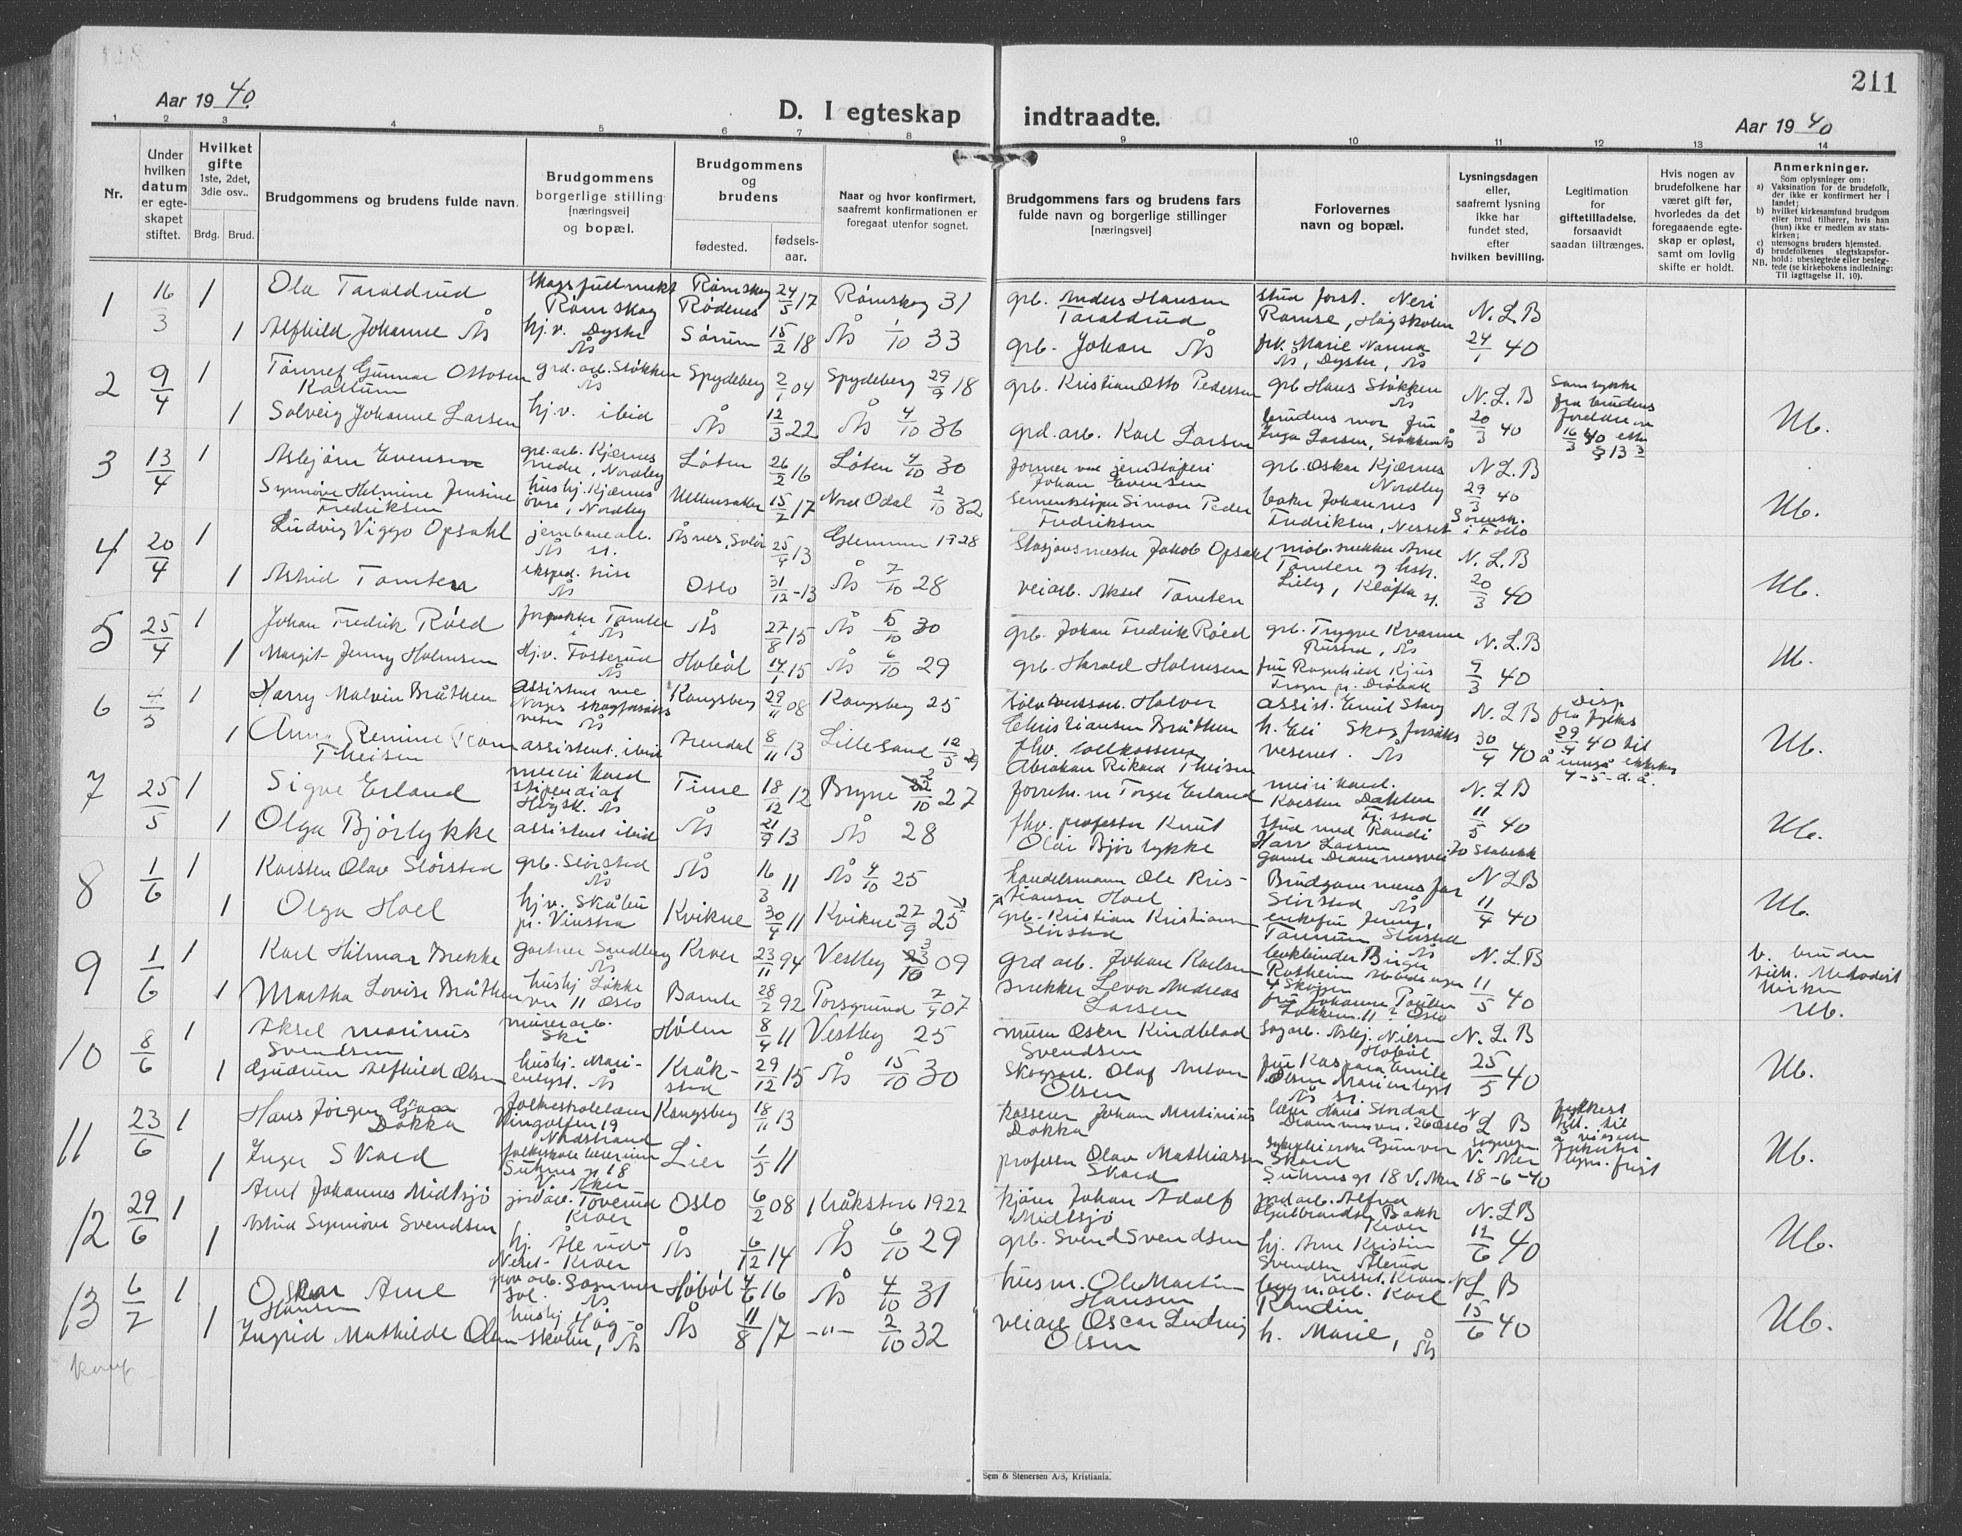 211
Aar 1940.
D. I egteskap indtraadte.
Aar 1940
1 2 3 4 5 6 7 8 9 10 11 12 13 14
Nr.
Under hvilken datum er egteskapet stiftet.
Hvilket gifte 1ste, 2det, 3die osv..
Brdg. Brud.
Brudgommens og brudens fulde navn.
Brudgommens borgerlige stilling [næringsvei] og bopæl.
Brudgommens og brudens
fødested. fødselsaar.
Naar og hvor konfirmert, saafremt konfirmationen er foregaat utenfor sognet.
Brudgommens fars og brudens fars fulde navn og borgerlige stillinger [næringsvei]
Forlovernes navn og bopæl.
Lysningsdagen eller, saafremt lysning ikke har fundet sted, efter hvilken bevilling.
Legitimation for giftetilladelse, forsaavidt saadan tiltrænges.
Hvis nogen av brudefolkene har været gift før, hvorledes da det foregaaende egteskap er opløst, samt om lovlig skifte er holdt.
Anmerkninger.
Som oplysninger om:
a) Vaksination for de brudefolk, der ikke er konfirmert her i landet;
b) hvilket kirkesamfund brudgom eller brud tilhører, hvis han (hun) ikke er medlem av statskirken;
c) utensogns bruders hjemsted.
d) brudefolkenes slegtskapsforhold: ubeslegtede eller beslegtede (se kirkebokens indledning: Til iagttagelse II. 10).
NB.
1 16/3 1 Ola Taraldrud Skogsfullmekt. Rømskog Rømskog Rødenes 24/5 17 Rømskog 31 grb. Anders Hansen Taraldrud stud forst. Neri Ramse, Høgskolen N.L.B
1 Alfhild Johanne Ås hj.v. Dyster Ås Sørum 15/2 18 Ås 1/10 33 grb. Johan Ås frk. Marie Nanna Ås, Dyster, Ås 24/1 40
2 9/4 1 Gunnar Ottosen Kaltum grd.arb. Støkken Ås Spydeberg 2/1 04 Spydeberg 29/9 18 grb. Kristian Otto Pedersen grb Hans Støkken Ås N.L.B Samtykke fra brudens foreldre av 16/3 40 etter § 13 3
1 Solveig Johanne Larsen hj.v. ibid Ås 12/3 22 Ås 4/10 36 grd.arb. Karl Larsen brudens mor fru Inga Larsen, Støkken Ås 20/3 40 Ub.
3 13/4 1 Asbjørn Evensen grd.arb. Kjærnes nedre, Nordby Løten 26/2 16 Løten 4/10 30 former ved jernstøperi Johan Evensen grb. Oskar Kjærnes Nordby N.L.B
Synnøve Helmine Jensine Fredriksen hushj. Kjærnes øvre, Nordby Ullensaker 15/7 17 Nord Odal 2/10 32 Simon Peder Fredriksen baker Johannes Fredriksen, Nesset 29/3 40 Sorensk. i Follo Ub.
4 20/4 1 Ludvig Viggo Opsahl jernbanearb. Ås st. Åsnes, Solør 25/9 13 Glemmen 1928 Stasjonsmester Jakob Opsahl møb.snekker Arne Tomten og hstr. N.L.B
1 Astrid Tomten eksped.trise Ås Oslo 31/12 -13 Ås 7/10 28 veiarb. Aksel Tomten Lilly, Kløfta st. 20/3 40 Ub.
5 25/4 1 Johan Fredrik Røed forpakter Tomter i Ås Ås 27/8 15 Ås 5/10 30 grb. Johan Fredrik Røed grb. Trygve Kvarme Rustad, Ås N.L.B
1 Margit Jenny Holmsen hj.v. Fosterud Ås Hobøl 14/1 15 Ås 6/10 29 grb. Harald Holmsen fru Ragnhild Kjus Trogn p. Drøbak 9/3 40 Ub.
6 4/5 1 Harry Malvin Bråthen assistent ved Norges skogforsøksvesen Ås Kongsberg 29/11 08 Kongsberg 25 Halvor Christiansen Bråthen assist. Emil Stang h. Eli Skogforsøksvesenet. Ås N.L.B Disp fra fylkes 29/4 40 til å inngå ekteskap 4-5-d.å.
1 Anna Theisen assistent. ibid Arendal 8/11 13 Lillesand 12/5 29 fhv. tollkasserer Abraham Rikard Theisen 30/4 40 Ub.
7 25/5 1 Sigve Erland meieri kand stipendiat Høgsk. Ås Time 18/12 12 Bryne 2/10 27 forretn.m Torger Erland meieri kand. Karsten Døhlen Fr.stad N.L.B
1 Olga Bjørlykke assistent ibid Ås 21/9 13 Ås 28 fhv. professor Knut Olai Bjørlykke stud med Randi Harr Larsen Gamle Drammensvei 70 Stabekk 11/5 40 Ub.
8 1/6 1 Karsten Olav Slørstad grb. Slørstad Ås Ås 16/3 11 Ås 4/10 25 handelsmann Ole Kristiansen Hoel Brudgommens far Slørstad Ås N.L.B
1 Olga Hoel hj.v. Skåbu pr. Vinstra Kvikne 30/4 11 Kvikne 27/9 25 grb. Kristian Kristiansen Slørstad enkefru Jenny Slørstad Ås 11/4 40 Ub.
9 1/6 1 Karl Hilmar Brekke gartner Sandberg Ås Kroer 23/11 94 Vestby 3/10 09 grd arb. Johan Karlsen bokbinder Birger Rotheim 4 Skøyen N.L.B b. bruden tilh. Metodistkirken
1 Martha Lovise Bråthen hushj Løkkevn 11 Oslo Bamle 28/2 92 Porsgrund 7/9 07 snekker Levor Andreas Larsen fru Johanne Løkkevn. 11 Oslo 11/5 40 Ub.
10 8/6 1 Aksel Marinus Svendsen murerarb. Ski Hølen 8/4 11 Vestby 25 murer Oskar Kindblad Svendsen Sagarb. Asbj. Nilsen Hobøl N.L.B
1 Gudrun Alfhild Olsen hushj. Marienlyst. Ås Kråkstad 29/12 15 Ås 15/10 30 Skogsarb. Olaf Anton Olsen fru Kaspara Emilie Olsen Marienlyst Ås st. 25/5 40 Ub.
11 23/6 1 Hans Jørgen Dokka folkeskolelærer 19 Nordstrand Kongsberg 18/11 13 kasserer Johan Martinius Dokka lærer Hans Stordal Drammensvn. 26 Oslo N.L.B
1 Inger Skard folkeskole lærerinne Suhms gt 18 V. Aker Lier 1/5 11 professor Olav Mathiassen Skard Gunvor Skard Suhms gt 18 V. Aker sognepr. V. Aker 18-6-40 Ub.
12 29/6 1 Arne Johannes Midtsjø jordarb. Toverud Kroer Oslo 6/2 08 Kråkstad 1922 kjører Johan Adolf Midtsjø jordarb. Alfred Bakk Kroer N.L.B
1 Astrid Synnøve Svendsen hj. Ålerud-Neset-Kroer Ås 6/12 14 Ås 6/10 29 grb. Svend Svendsen hj. Anne Kristin Svendsen Ålerud nesset. Kroer 12/6 40 Ub.
13 6/7 1 Oskar Arne Hansen grovarb. Sommersol. Ås Hobøl 4/6 16 Ås 4/10 31 husm. Ole Martin Hansen bygn.arb. Karl Randin N.L.B
1 Ingrid Mathilde Olsen hushj Høgskolen, Ås Ås 11/8 17 -"- 2/10 32 veiarb Oscar Ludvig Olsen h. Marie, Ås 15/6 40 Ub.
Sem & Stenersen A/S, Kristiania.